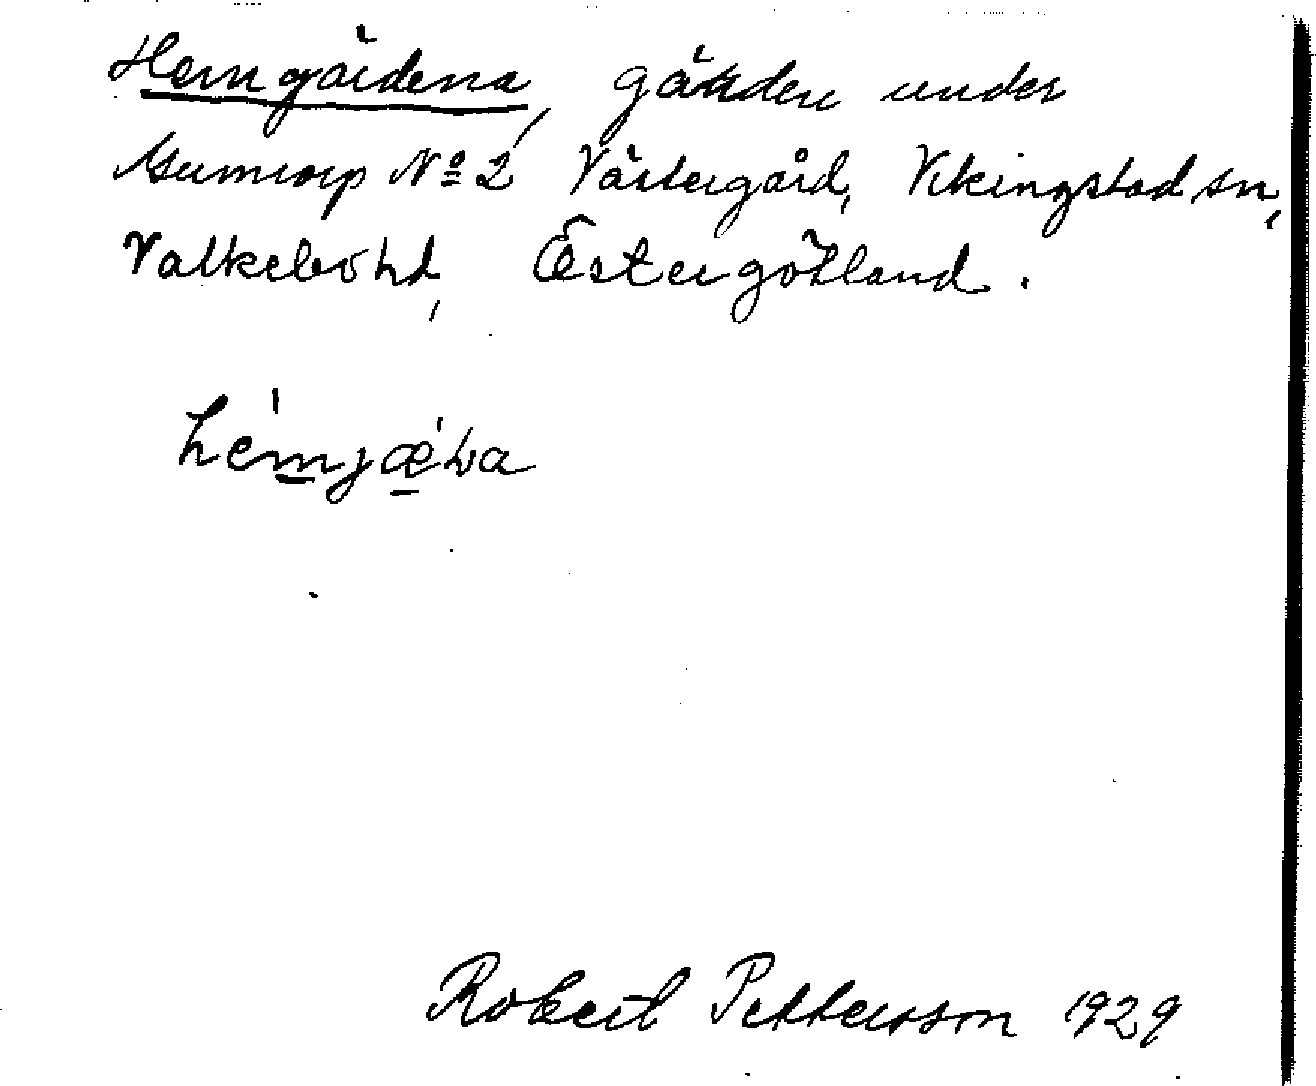 Hemgärdena, gärden under
Gumtorp No 2 Västergård, Vikingstad sn,
Valkebo hd, Östergötland.
Robert Pettersson 1929